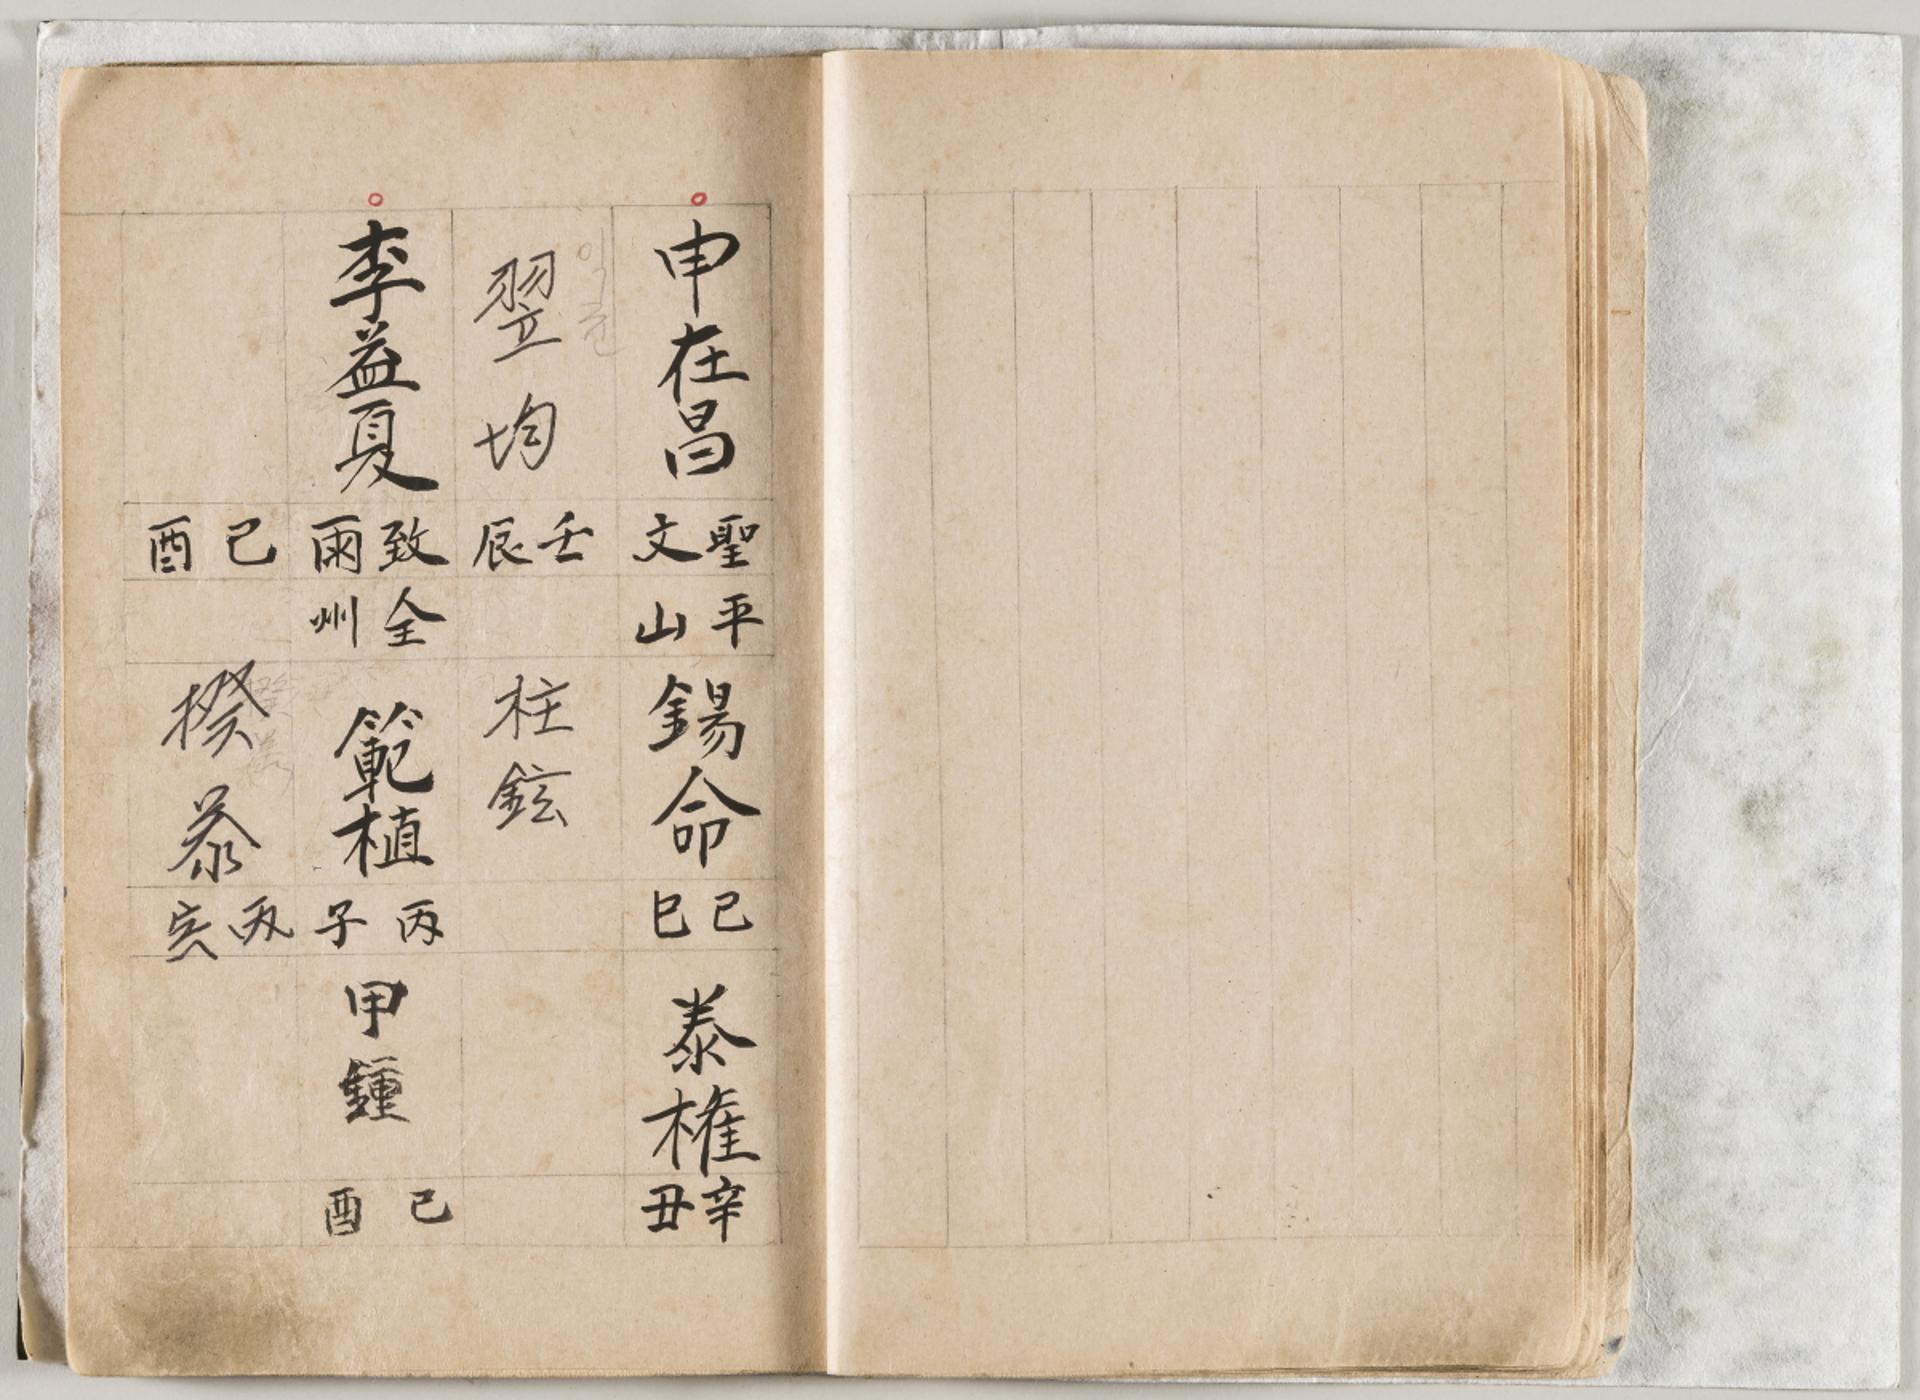 申在昌
聖文
平山
錫命
己巳
泰權
辛丑
翌均
壬辰
柱鉉
李益夏
致雨
全州
範植
丙子
甲鍾
己酉
己酉
揆恭
丙亥